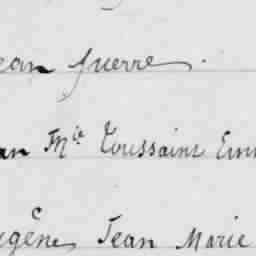 ean Guerre.
an Mie Toussaint Em
ugène Jean Marie